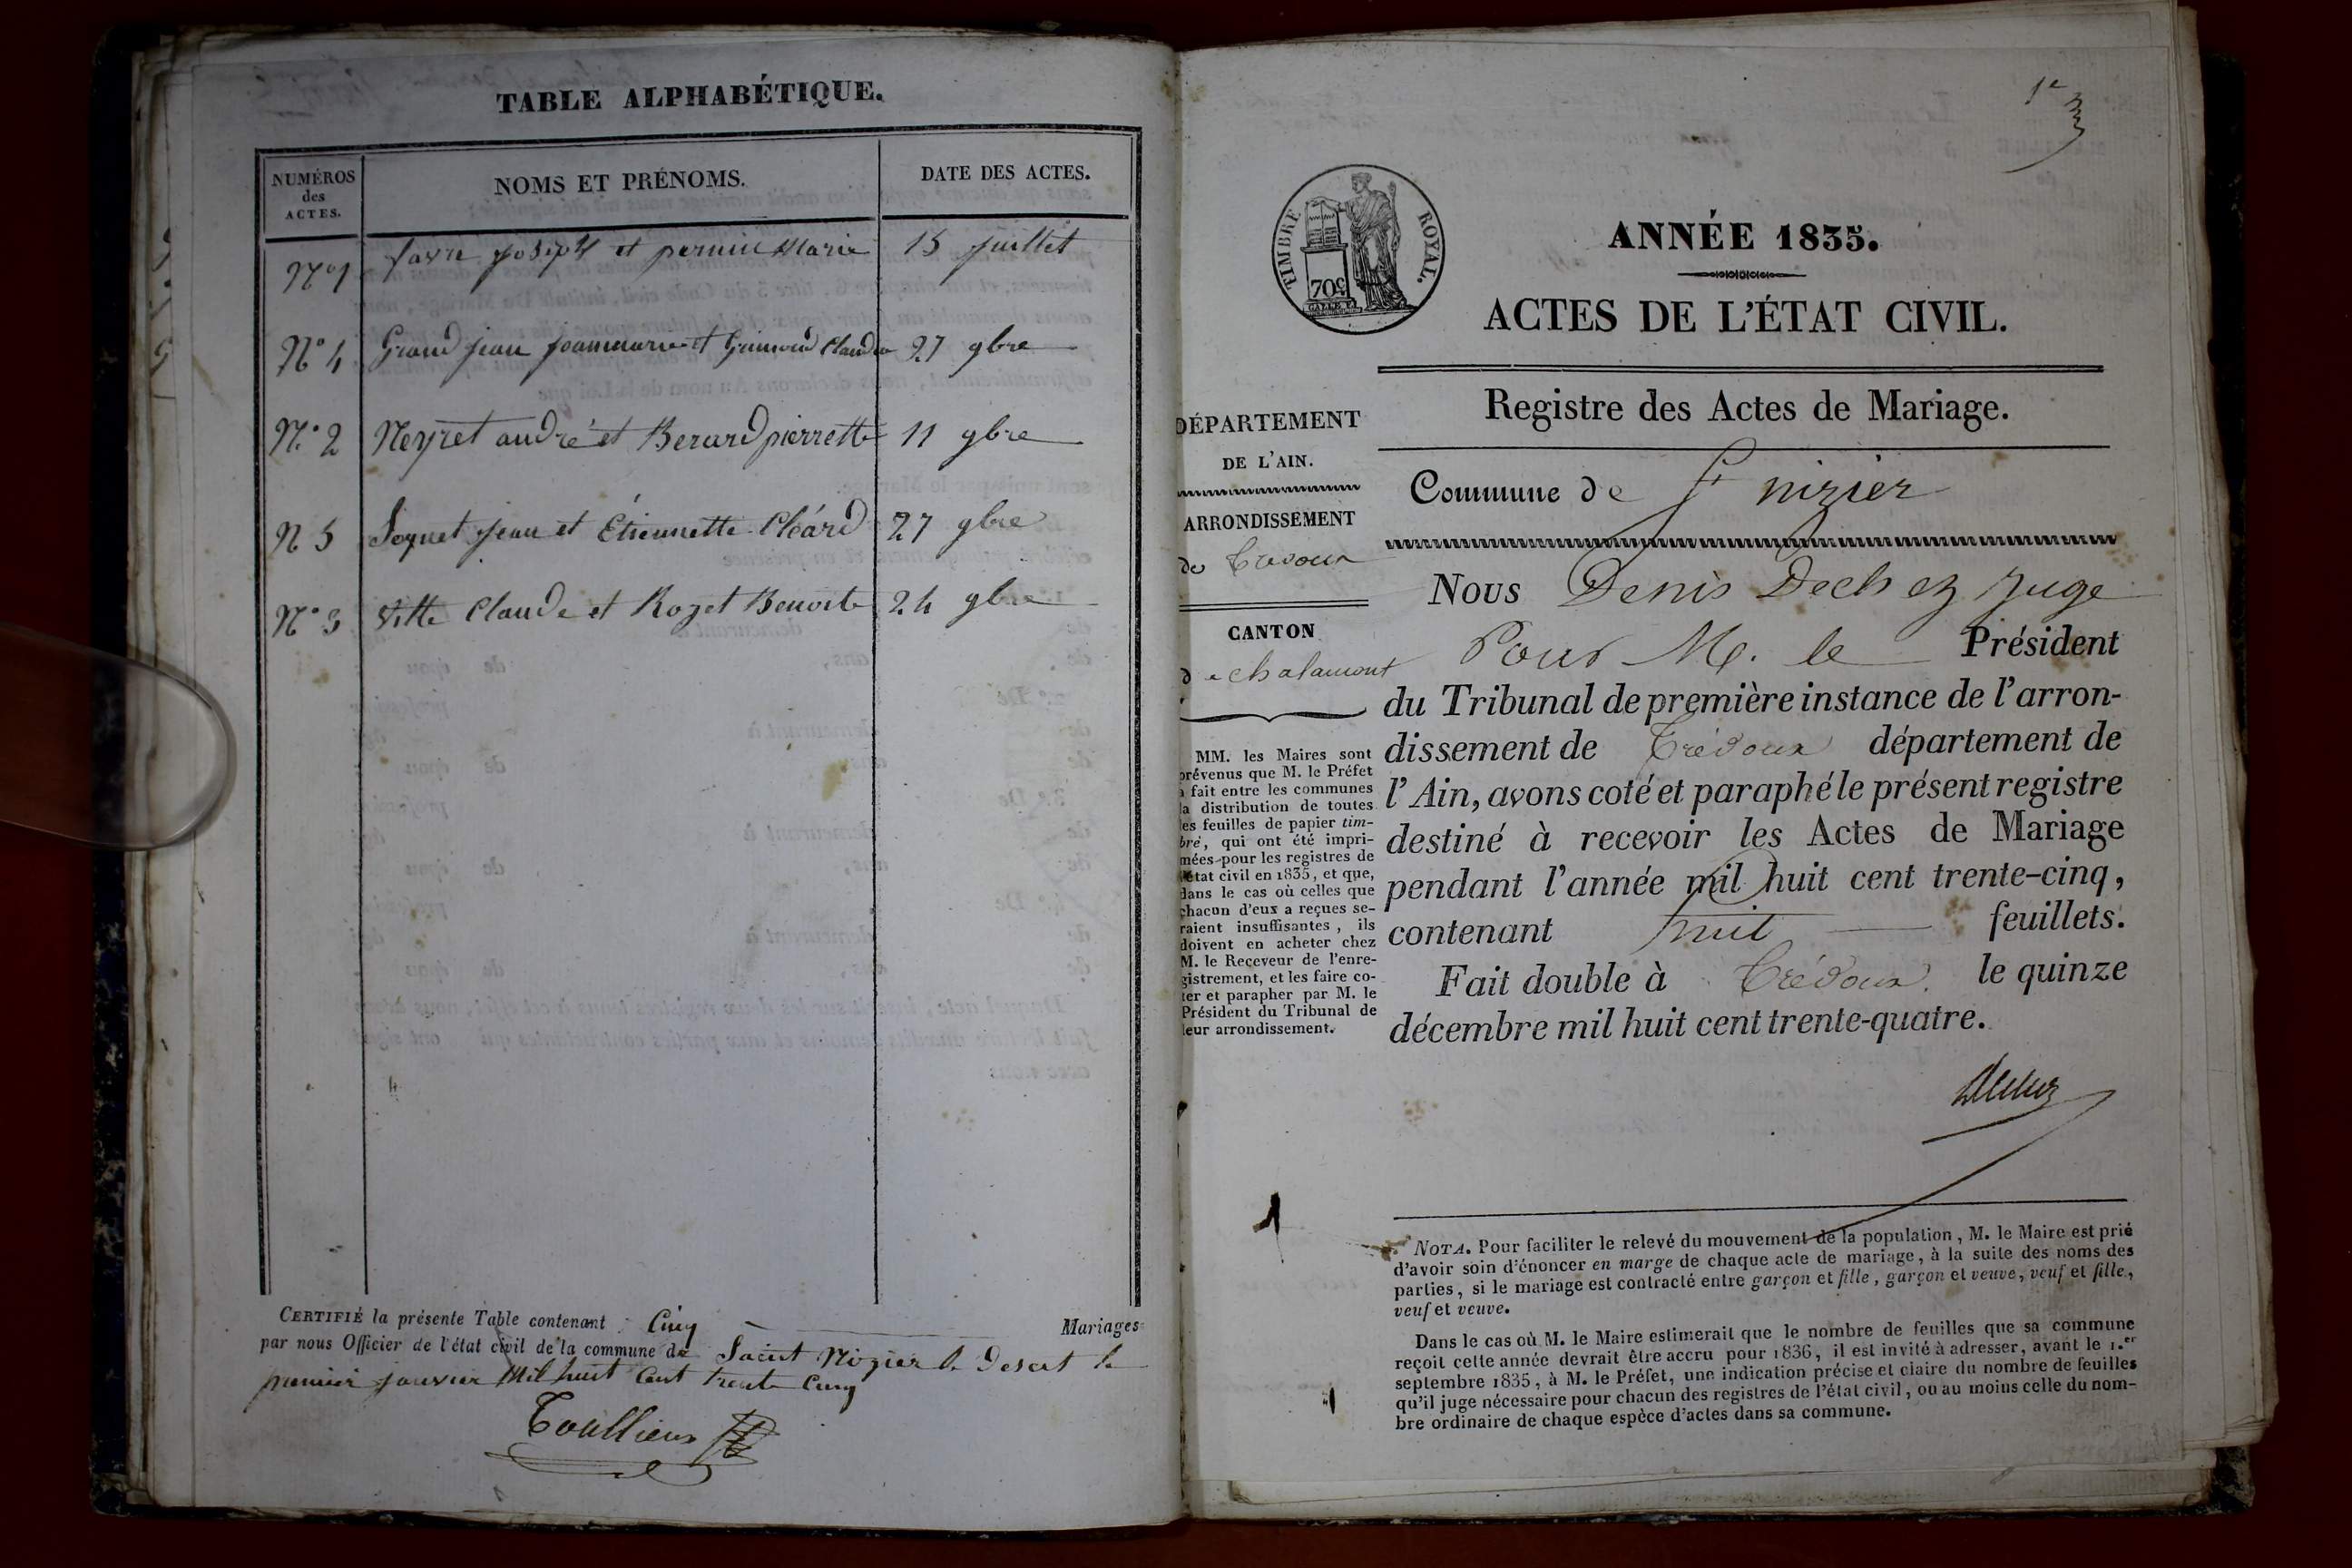 TABLE ALPHABÉTIQUE.
NUMÉROS des ACTES.
NOMS ET PRÉNOMS.
DATE DES ACTES.
N°1 favre joseph et pernin Marie 15 juillet
N°4 Grand jean joanmarie et Guinoud Claudin 27 9bre
N°2 Neyret andré et Berard pierrette 11 9bre
N 5 Soquet jean et Étiennette Cléard 27 9bre
N°3 Vitte Claude et Rozet Benoite 24 9bre
CERTIFIÉ la présente Table contenant Cinq Mariages
par nous Officier de l'état civil de la commune de Saint Nizier le Desert le
premier janvier Mil huit Cent trente Cinq
Toullieux
1e
TIMBRE ROYAL.
70c
ANNÉE 1835.
ACTES DE L'ÉTAT CIVIL.
Registre des Actes de Mariage.
DÉPARTEMENT
DE L'AIN.
ARRONDISSEMENT
de Trevoux
CANTON
de chalamont
MM. les Maires sont
prévenus que M. le Préfet
a fait entre les communes
la distribution de toutes
les feuilles de papier tim-
bré, qui ont été impri-
mées pour les registres de
l'état civil en 1835, et que,
dans le cas où celles que
chacun d'eux a reçues se-
raient insuffisantes, ils
doivent en acheter chez
M. le Receveur de l'enre-
gistrement, et les faire co-
ter et parapher par M. le
Président du Tribunal de
leur arrondissement.
Commune de St nizier
Nous Denis Dechez juge
Pour M. le Président
du Tribunal de première instance de l'arron-
dissement de Trévoux département de
l'Ain, avons coté et paraphé le présent registre
destiné à recevoir les Actes de Mariage
pendant l'année mil huit cent trente-cinq,
contenant huit feuillets.
Fait double à Trévoux le quinze
décembre mil huit cent trente-quatre.
Dechez
NOTA. Pour faciliter le relevé du mouvement de la population, M. le Maire est prié
d'avoir soin d'énoncer en marge de chaque acte de mariage, à la suite des noms des
parties, si le mariage est contracté entre garçon et fille, garçon et veuve, veuf et fille,
veuf et veuve.
Dans le cas où M. le Maire estimerait que le nombre de feuilles que sa commune
reçoit cette année devrait être accru pour 1836, il est invité à adresser, avant le 1.er
septembre 1835, à M. le Préfet, une indication précise et claire du nombre de feuilles
qu'il juge nécessaire pour chacun des registres de l'état civil, ou au moins celle du nom-
bre ordinaire de chaque espèce d'actes dans sa commune.